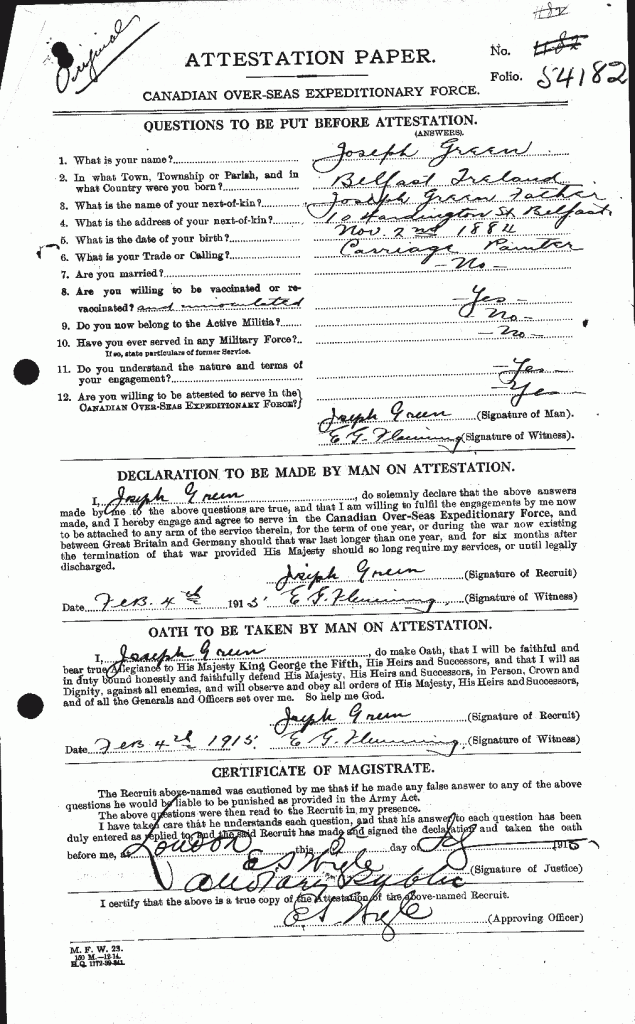 Original
ATTESTATION PAPER.
No. 482
482
Folio. 54182
CANADIAN OVER-SEAS EXPEDITIONARY FORCE.
QUESTIONS TO BE PUT BEFORE ATTESTATION.
(ANSWERS).
1. What is your name? Joseph Green
2. In what Town, Township or Parish, and in
what Country were you born? Belfast Ireland
3. What is the name of your next-of-kin? Joseph Green Father
4. What is the address of your next-of-kin? 10 St Belfast
5. What is the date of your birth? Nov. 2nd 1884
6. What is your Trade or Calling? Carriage Painter
7. Are you married? — No —
8. Are you willing to be vaccinated or re-
vaccinated? and innoculated — Yes —
9. Do you now belong to the Active Militia? — No —
10. Have you ever served in any Military Force? — No —
If so, state particulars of former Service.
11. Do you understand the nature and terms of
your engagement? — Yes —
12. Are you willing to be attested to serve in the
CANADIAN OVER-SEAS EXPEDITIONARY FORCE? Yes —
Joseph Green (Signature of Man).
E G. Fleming (Signature of Witness).
DECLARATION TO BE MADE BY MAN ON ATTESTATION.
I, Joseph Green, do solemnly declare that the above answers
made by me to the above questions are true, and that I am willing to fulfil the engagements by me now
made, and I hereby engage and agree to serve in the Canadian Over-Seas Expeditionary Force, and
to be attached to any arm of the service therein, for the term of one year, or during the war now existing
between Great Britain and Germany should that war last longer than one year, and for six months after
the termination of that war provided His Majesty should so long require my services, or until legally
discharged.
Joseph Green (Signature of Recruit)
Date Feb. 4th 1915 E G Fleming, (Signature of Witness)
OATH TO BE TAKEN BY MAN ON ATTESTATION.
I, Joseph Green, do make Oath, that I will be faithful and
bear true Allegiance to His Majesty King George the Fifth, His Heirs and Successors, and that I will as
in duty bound honestly and faithfully defend His Majesty, His Heirs and Successors, in Person, Crown and
Dignity, against all enemies, and will observe and obey all orders of His Majesty, His Heirs and Successors,
and of all the Generals and Officers set over me. So help me God.
Joseph Green (Signature of Recruit)
Date Feb 4th 1915 E G Fleming, (Signature of Witness)
CERTIFICATE OF MAGISTRATE.
The Recruit above-named was cautioned by me that if he made any false answer to any of the above
questions he would be liable to be punished as provided in the Army Act.
The above questions were then read to the Recruit in my presence.
I have taken care that he understands each question, and that his answer to each question has been
duly entered as replied to, and the said Recruit has made and signed the declaration and taken the oath
before me, at London this day of 1915
(Signature of Justice)
A Notary Public
I certify that the above is a true copy of the Attestation of the above-named Recruit.
(Approving Officer)
M. F. W. 23.
150 M.—12-14.
H.Q. 1772-39-841.